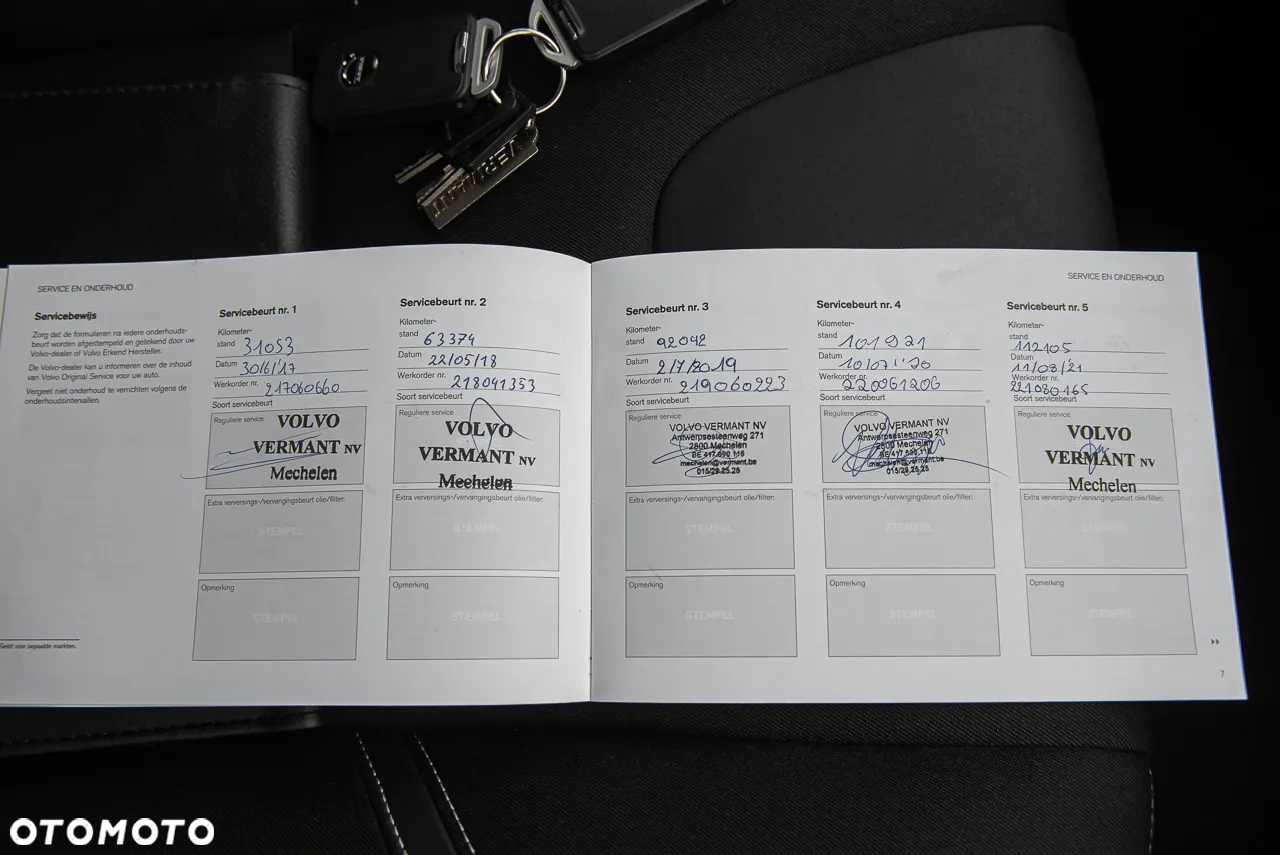 VERMANT
SERVICE EN ONDERHOUD
Servicebewijs
Zorg dat de formulieren na iedere onderhouds-
beurt worden afgestempeld en getekend door uw
Volvo-dealer of Volvo Erkend Hersteller.
De Volvo-dealer kan u informeren over de inhoud
van Volvo Original Service voor uw auto.
Vergeet niet onderhoud te verrichten volgens de
onderhoudsintervallen.
Geldt voor bepaalde markten.
Servicebeurt nr. 1
Kilometer-
stand 31053
Datum 30/6/'17
Werkorder nr. 217060660
Soort servicebeurt
Reguliere service
VOLVO
VERMANT NV
Mechelen
Extra verversings-/vervangingsbeurt olie/filter:
STEMPEL
Opmerking
STEMPEL
Servicebeurt nr. 2
Kilometer-
stand 63374
Datum 22/05/18
Werkorder nr. 218041353
Soort servicebeurt
Reguliere service
VOLVO
VERMANT NV
Mechelen
Extra verversings-/vervangingsbeurt olie/filter:
STEMPEL
Opmerking
STEMPEL
SERVICE EN ONDERHOUD
Servicebeurt nr. 3
Kilometer-
stand 92042
Datum 2/7/2019
Werkorder nr. 219060223
Soort servicebeurt
Reguliere service
VOLVO VERMANT NV
Antwerpsesteenweg 271
2800 Mechelen
mechelen@vermant.be
015/29.25.25
Extra verversings-/vervangingsbeurt olie/filter:
STEMPEL
Opmerking
STEMPEL
Servicebeurt nr. 4
Kilometer-
stand 101921
Datum 10/07/'20
Werkorder nr. 220061206
Soort servicebeurt
Reguliere service
VOLVO VERMANT NV
Antwerpsesteenweg 271
2800 Mechelen
mechelen@vermant.be
015/29.25.25
Extra verversings-/vervangingsbeurt olie/filter:
STEMPEL
Opmerking
STEMPEL
Servicebeurt nr. 5
Kilometer-
stand 112105
Datum 11/08/21
Werkorder nr. 221080165
Soort servicebeurt
Reguliere service
VOLVO
VERMANT NV
Mechelen
Extra verversings-/vervangingsbeurt olie/filter:
STEMPEL
Opmerking
STEMPEL
7
OTOMOTO